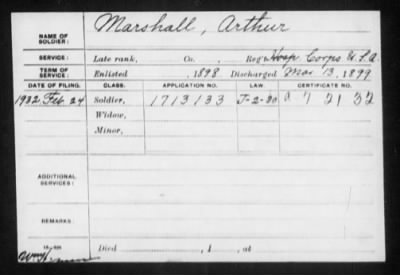 NAME OF SOLDIER: Marshall, Arthur
SERVICE: Late rank, Co. Reg't Hosp Corps U.S.A.
TERM OF SERVICE: Enlisted , 1898 Discharged Mar 13, 1899
DATE OF FILING. CLASS. APPLICATION NO. LAW. CERTIFICATE NO.
1932 Feb. 24 Soldier, 1713133 J-2-30 A 7 21 32
Widow,
Minor,
ADDITIONAL SERVICES:
REMARKS:
Died , 1 , at